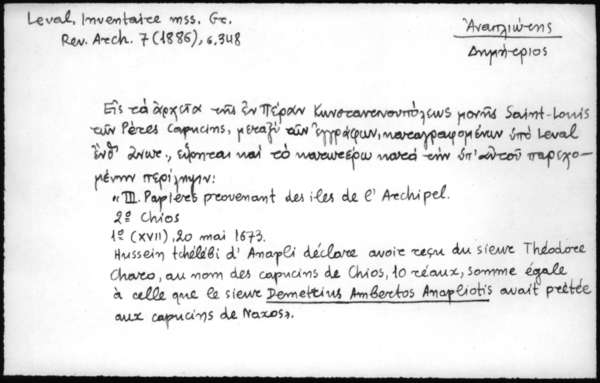 Leval, Inventaire mss. Gr.
Rev. Arch. 7 (1886), σ. 348
Ἀναπλιώτης
Δημήτριος
Εἰς τὰ ἀρχεῖα τῆς ἐν Πέραν Κωνσταντινουπόλεως μονῆς Saint-Louis
τῶν Pères Capucins, μεταξὺ τῶν ἐγγράφων, καταγραφομένων ὑπὸ Leval
ἔνθ' ἄνωτ., εὕρηται καὶ τὸ κατωτέρω κατὰ τὴν ὑπ' αὐτοῦ παρεχο-
μένην περίληψιν:
«III. Papiers provenant des iles de l'Archipel.
2º Chios
1º (XVII), 20 mai 1673.
Hussein tchélébi d'Anapli déclare avoir reçu du sieur Théodore
Charo, au nom des capucins de Chios, 10 réaux, somme égale
à celle que le sieur Demetrius Ambertos Anapliotis avait prêtée
aux capucins de Naxos».